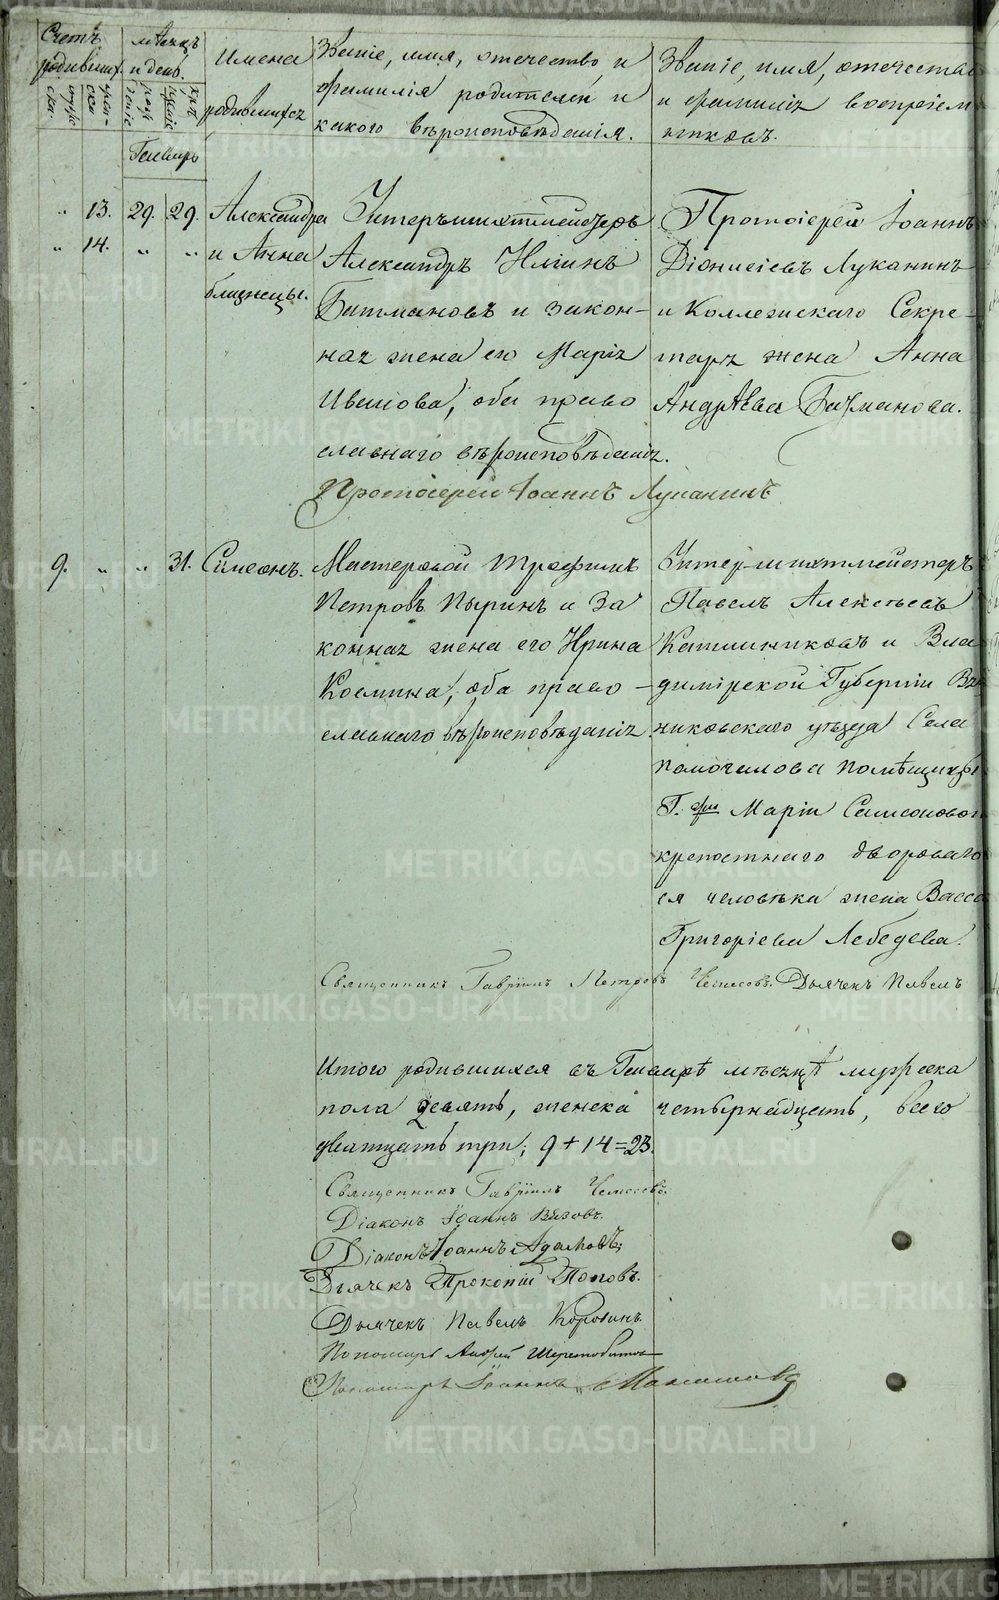 Счетъ родившихъ
мѣсяцъ и день.
Имена родившихся
Званіе, имя, отечество, и фамилія родителей и какого вѣроисповѣданія.
Званіе, имя, отечество и фамилія воспріемниковъ.
Генварь
„ 13. 29. 29. Александра
„ 14. „ „ и Анна
близнецы.
Унтеръшихтмейстеръ
Александръ Ильинъ
и закон-
ная жена его Марія
Иванова, оба право
славнаго вѣроисповѣданія.
Протоіерей Іоаннъ
Діонисіевъ Луканинъ
и Коллежскаго Секре-
таря жена Анна
Андреѣва
Протоіерей Іоаннъ Луканинъ
9. „ „ 31. Симеонъ.
Мастеровой Трофимъ
Петровъ Пыринъ и за
конная жена его Ирина
Космина, оба право-
славнаго вѣроисповѣданія
Унтер-шихтмейстеръ
Павелъ Алексѣевъ
и Вла
димірской Губерніи Вяз
никовскаго уѣзда Села
помѣщицы
Г.жи Маріи Симеоновой
крепостнаго двороваго
ея человѣка жена Васса
Григоріева Лебедева.
Священникъ Гавріилъ Петровъ Дьячекъ Павелъ
Итого родившихся въ Генварѣ мѣсяцѣ мужеска
пола девять, женска четырнадцать, всего
дватцать три; 9 + 14 = 23.
Священникъ Гавріилъ
Діаконъ Іоаннъ
Діаконъ Іоаннъ
Дьячекъ Прокопій Поповъ.
Дьячекъ Павелъ Коровинъ
Пономарь Андрей
Пономарь Іоаннъ
METRIKI.GASO-URAL.RU